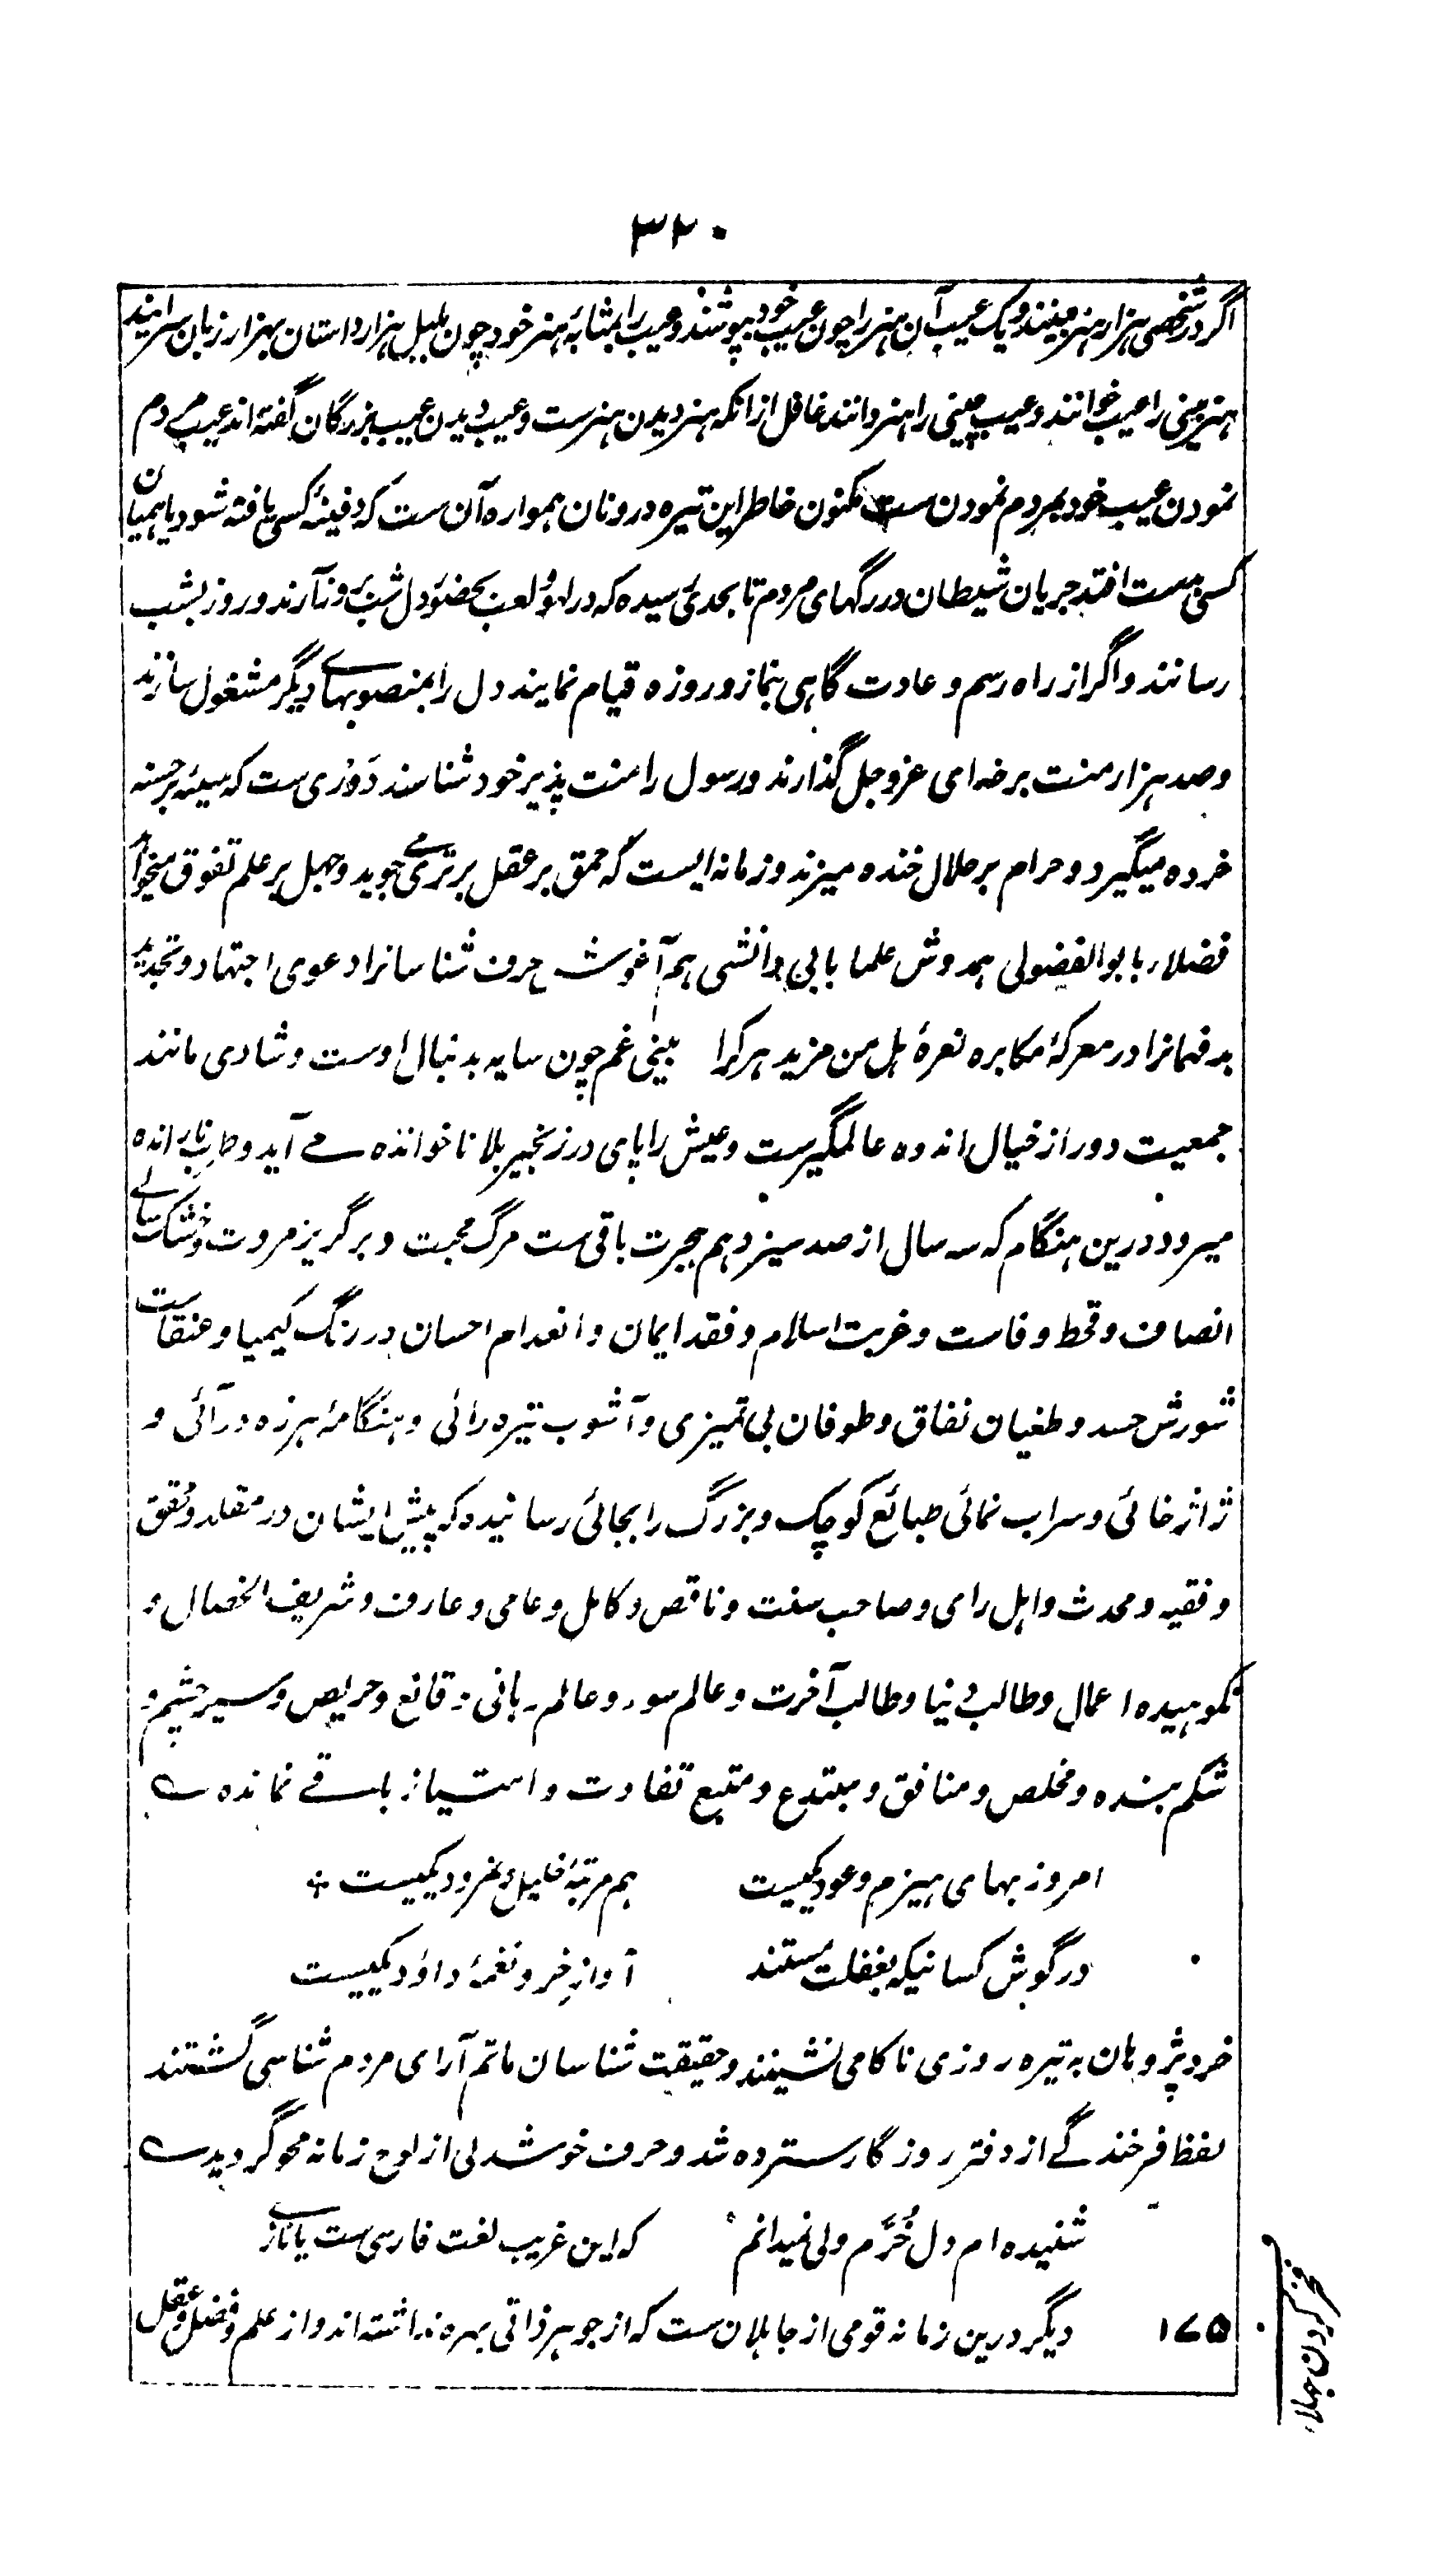 ۳۲۰
اگر در شخصی هزار هنر بینند و یک عیب آن هنر را چون عیب خود بپوشند و عیب را بمثابهٔ هنر خود چون بلبل هزار داستان بهزار زبان سرایند
هنر بینی را عیب خوانند و عیب بینی را هنر دانند غافل ازانکه هنر دیدن هنرست و عیب دیدن عیب بزرگان گفته‌اند عیب مردم
نمودن عیب خود بمردم نمودن ست مکنون خاطر این تیره درونان همواره آن ست که دفینهٔ کسی یافته شود یا همیان
کسی بدست افتد جریان شیطان در رگهای مردم تا بحدی رسیده که در لهو و لعب بحضور دل شب بروز آرند و روز بشب
رسانند و اگر از راه رسم و عادت گاهی بنماز و روزه قیام نمایند دل را بمنصوبهای دیگر مشغول سازند
و صد هزار منت بر خدای عز و جل گذارند و رسول را منت پذیر خود شناسند دَوری ست که سیئه بر حسنه
خرده میگیرد و حرام بر حلال خنده میزند و زمانه ایست که حمق بر عقل برتری می جوید و جهل بر علم تفوق میخواهد
فضلا را با بوالفضولی همدوش علما با بی دانشی هم آغوش حرف شناسانرا دعوی اجتهاد و تجدید
بدفهمانرا در معرکهٔ مکابره نعرهٔ هل من مزید هر کرا بینی غم چون سایه بدنبال اوست و شادی مانند
جمعیت دور از خیال اندوه عالمگیرست و عیش را پای در زنجیر بلا ناخوانده می آید و طرب نارانده
میرود درین هنگام که سه سال از صد سیزدهم هجرت باقی ست مرگ محبت و برگریز مروت و خشک سالی
انصاف و قحط وفاست و غربت اسلام و فقد ایمان و انعدام احسان در رنگ کیمیا و عنقاست
شورش حسد و طغیان نفاق و طوفان بی تمیزی و آشوب تیره رائی و هنگامهٔ هرزه درآئی و
ژاژ خائی و سراب نمائی طبائع کوچک و بزرگ را بجائی رسانیده که پیش ایشان در مقلد و محقق
و فقیه و محدث و اهل رای و صاحب سنت و ناقص و کامل و عامی و عارف و شریف الخصال و
نکوهیده اعمال و طالب دنیا و طالب آخرت و عالم سوء و عالم ربانی و قانع و حریص و سیر چشم و
شکم بنده و مخلص و منافق و مبتدع و متبع تفاوت و امتیاز باقی نمانده ؎
امروز بهای هیزم و عود یکیست هم مرتبهٔ خلیل و نمرود یکیست
در گوش کسانیکه بغفلت مستند آواز خر و نغمهٔ داؤد یکیست
خرد پژوهان به تیره روزی ناکامی نشینند و حقیقت شناسان ماتم آرای مردم شناسی گشتند
لفظ فرخندگی از دفتر روزگار سترده شد و حرف خوشدلی از لوح زمانه محو گردید ؎
شنیده ام دل خُرّم ولی نمیدانم که این غریب لغت فارسی ست یا تازی
۱۷۵ دیگر درین زمانه قومی از جاهلان ست که از جوهر ذاتی بهره نداشته اند و از علم و فضل و عقل